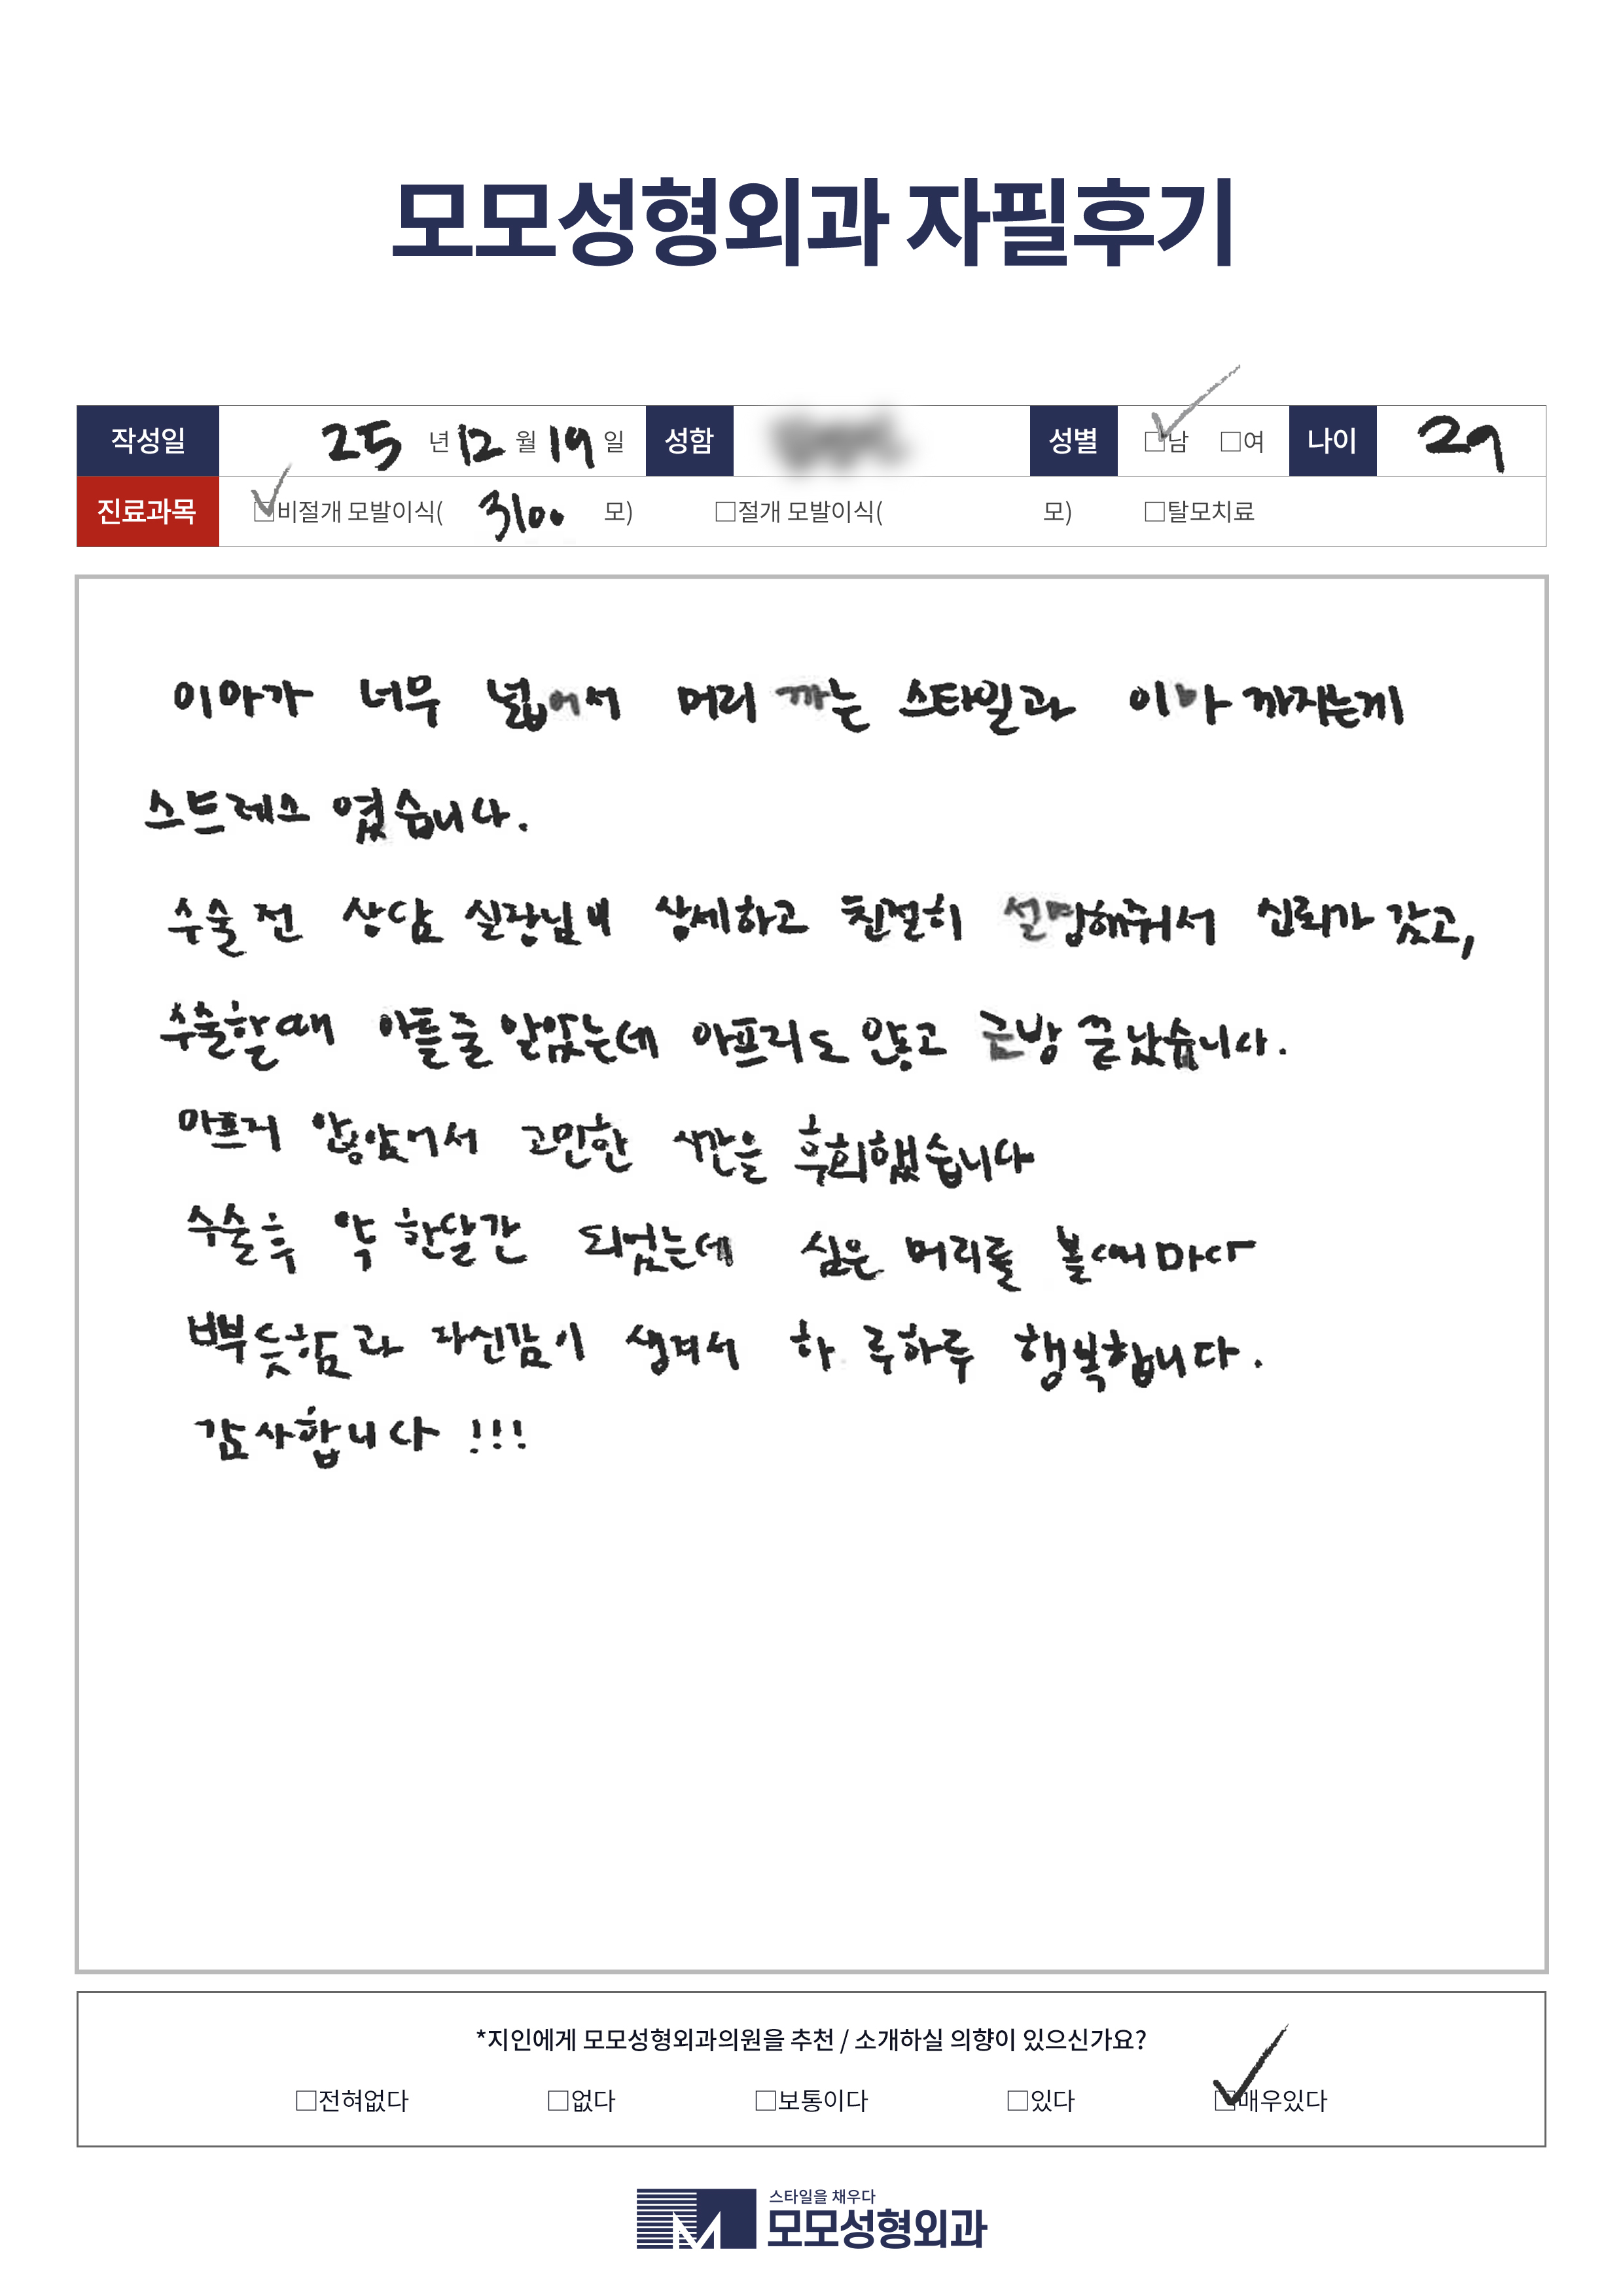 모모성형외과 자필후기
작성일 25 년 12 월 19 일 성함 성별 ☑남 □여 나이 29
진료과목 ☑비절개 모발이식( 3100 모) □절개 모발이식( 모) □탈모치료
이마가 너무 넓어서 머리 까는 스타일과 이마 까지는게
스트레스 였습니다.
수술 전 상담 실장님께 상세하고 친절히 설명해줘서 신뢰가 갔고,
수술할때 아플줄 알았는데 아프지도 않고 금방 끝났습니다.
아프지 않았어서 고민한 시간을 후회했습니다
수술후 약 한달간 되었는데 심은 머리를 볼때마다
뿌듯함과 자신감이 생겨서 하루하루 행복합니다.
감사합니다 !!!
*지인에게 모모성형외과의원을 추천 / 소개하실 의향이 있으신가요?
□전혀없다 □없다 □보통이다 □있다 ☑매우있다
스타일을 채우다
모모성형외과